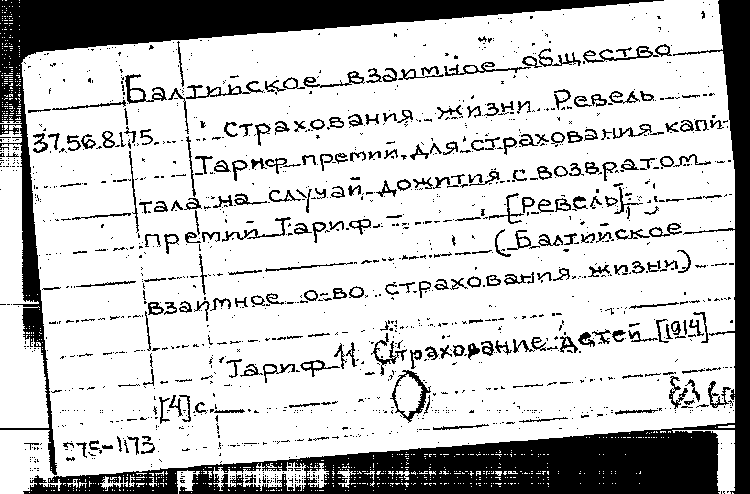 Балтийское взаимное общество
37.56.8175 страхования жизни Ревель
Тариф премий для страхования капи-
тала на случай дожития с возвратом
премий Тариф – [Ревель]
(Балтийское
взаимное о-во страхования жизни)
Тариф 11 Страхование детей [1914]
[4] с
75-1173